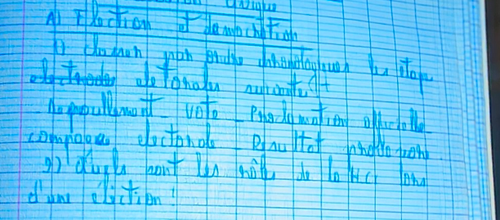 A) Election et démocratie
1) classer par ordre chronologique les étapes
électorales suivantes
Dépouillement - vote - Proclamation officielle
campagne électorale - Résultat provisoire
2) Quels sont les rôles de la HCI lors
d'une élection ?